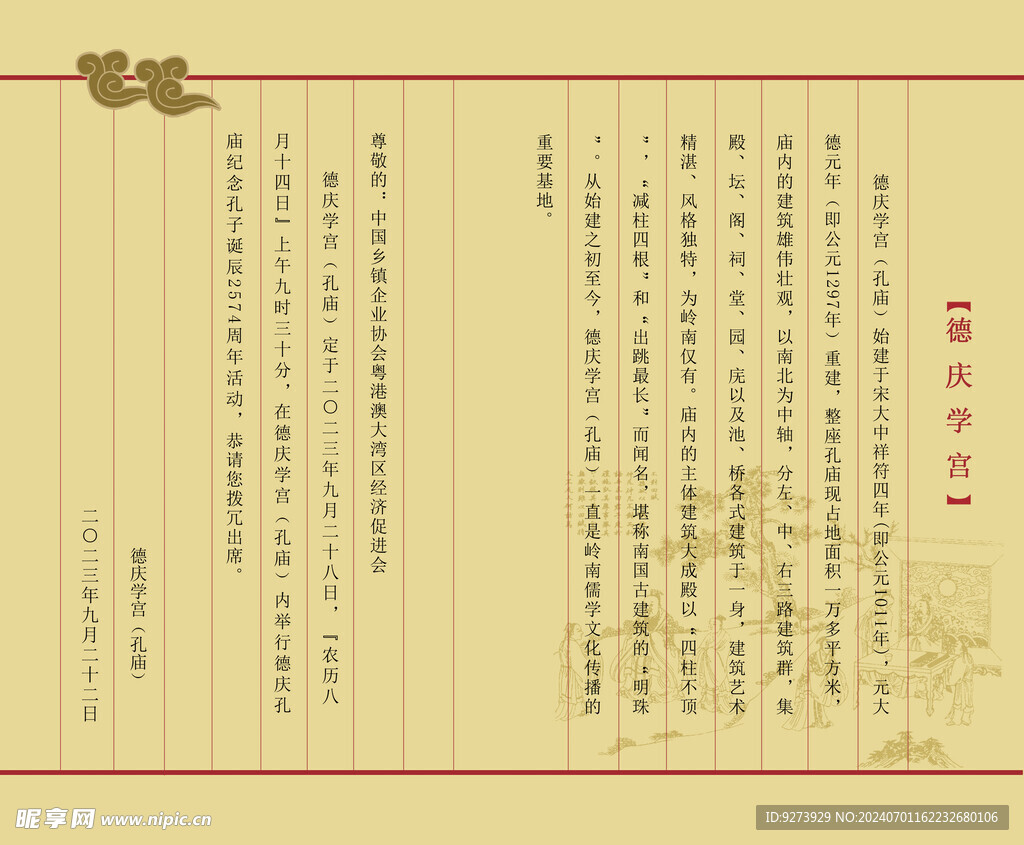 【德庆学宫】
德庆学宫（孔庙）始建于宋大中祥符四年（即公元1011年），元大
德元年（即公元1297年）重建，整座孔庙现占地面积一万多平方米，
庙内的建筑雄伟壮观，以南北为中轴，分左、中、右三路建筑群，集
殿、坛、阁、祠、堂、园、庑以及池、桥各式建筑于一身，建筑艺术
精湛、风格独特，为岭南仅有。庙内的主体建筑大成殿以“四柱不顶
”，“减柱四根”和“出跳最长”而闻名，堪称南国古建筑的“明珠
”。从始建之初至今，德庆学宫（孔庙）一直是岭南儒学文化传播的
重要基地。
尊敬的：中国乡镇企业协会粤港澳大湾区经济促进会
德庆学宫（孔庙）定于二〇二三年九月二十八日，『农历八
月十四日』上午九时三十分，在德庆学宫（孔庙）内举行德庆孔
庙纪念孔子诞辰2574周年活动，恭请您拨冗出席。
德庆学宫（孔庙）
二〇二三年九月二十二日
昵享网 www.nipic.cn
ID:9273929 NO:20240701162232680106